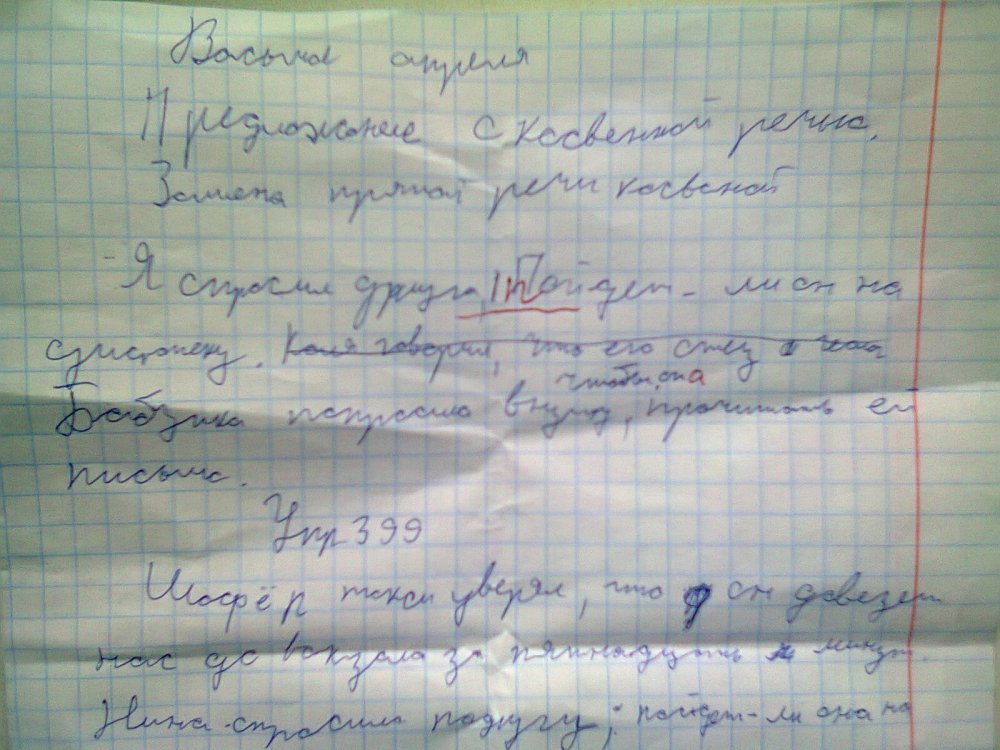 Восьмое апреля
Предложение с косвенной речью.
Замена прямой речи косвеной
- Я спросил друга, пПойдет-ли он на
дискотеку. Коля говорил, что его отец
чтобы она
Бабушка попросила внучку, прочитать ей
письмо.
Упр 399
Шофёр такси уверял, что он довезет
нас до вокзала за пятнадцать минут.
Нина спросила подругу, пойдет-ли она на